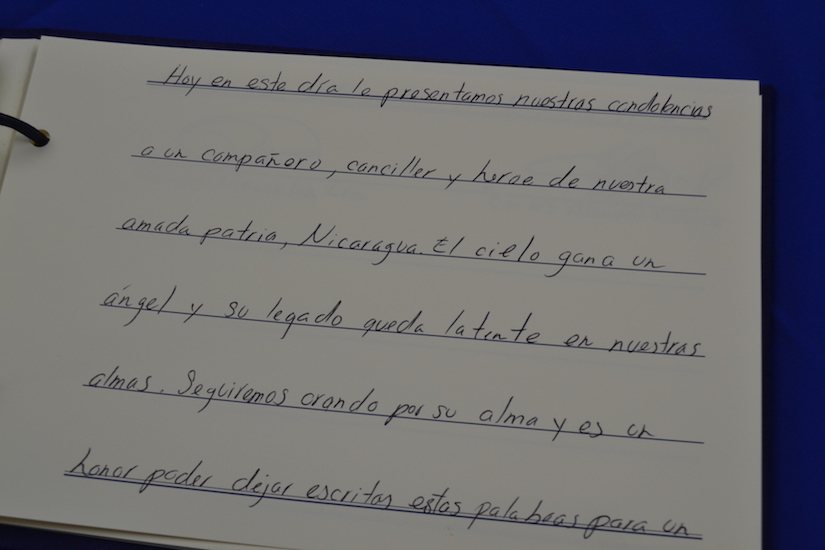 Hoy en este día le presentamos nuestras condolencias
a un compañero, canciller y heroe de nuestra
amada patria, Nicaragua. El cielo gana un
ángel y su legado queda latente en nuestras
almas. Seguiremos orando por su alma y es un
honor poder dejar escritas estas palabras para un